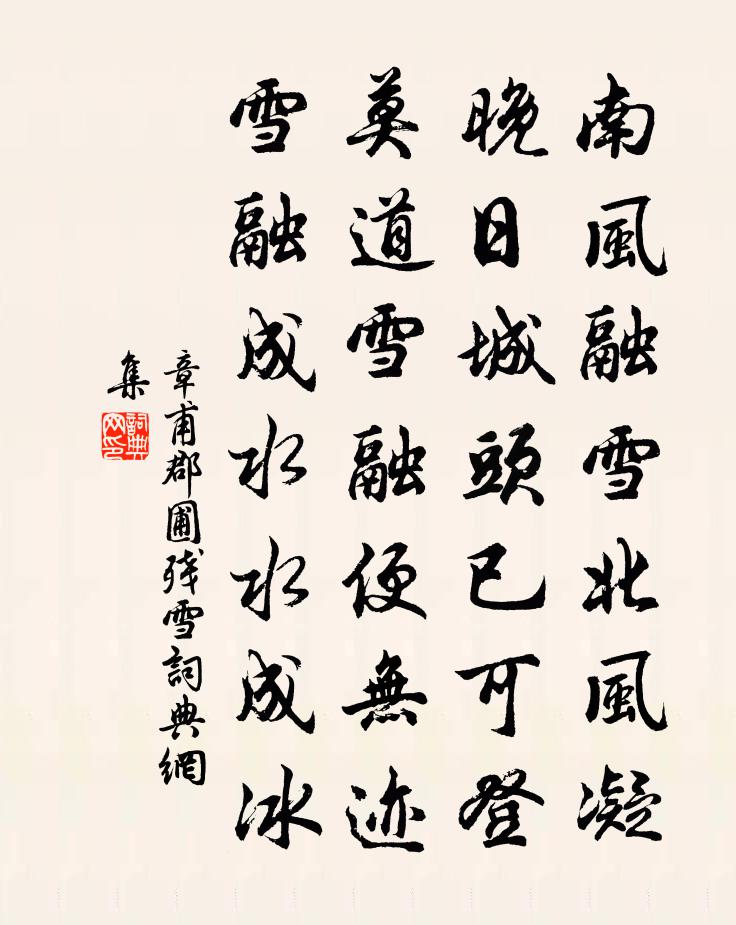 南風融雪北風凝
晚日城頭已可登
莫道雪融便無迹
雪融成水水成冰
章甫郡圃殘雪詞典網
集
詞典
网印